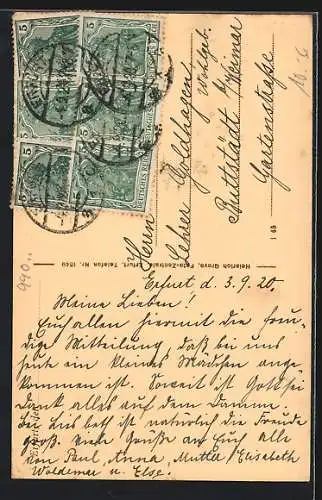 Herrn
Lehrer Goldhagen, Wohlgeb.
Buttstädt b/Weimar
Gartenstraße
Heinrich Grave, Foto-Zentrale, Erfurt, Telefon Nr. 1549
145
990.-
5
5
5
5
5
5
DEUTSCHES REICH
Erfurt d. 3.9.20.
Meine Lieben!
Euch allen hiermit die freu-
dige Mitteilung, daß bei uns
heute ein kleines Mädchen ange-
kommen ist. Soweit ist Gott sei
Dank alles auf dem Damm.
Bei Lisbeth ist natürlich die Freude
groß. Viele Grüße an Euch alle
von Paul, Anna, Mutter, Elisabeth
Woldemar u. Else.